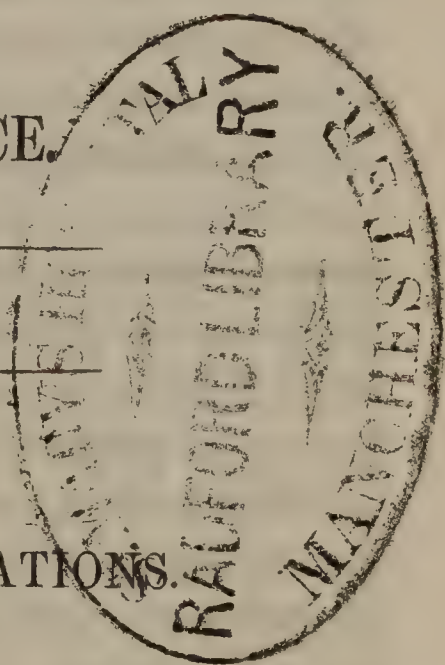 CE.
ATIONS.
RADFORD LIBRARY
MANCHESTER.